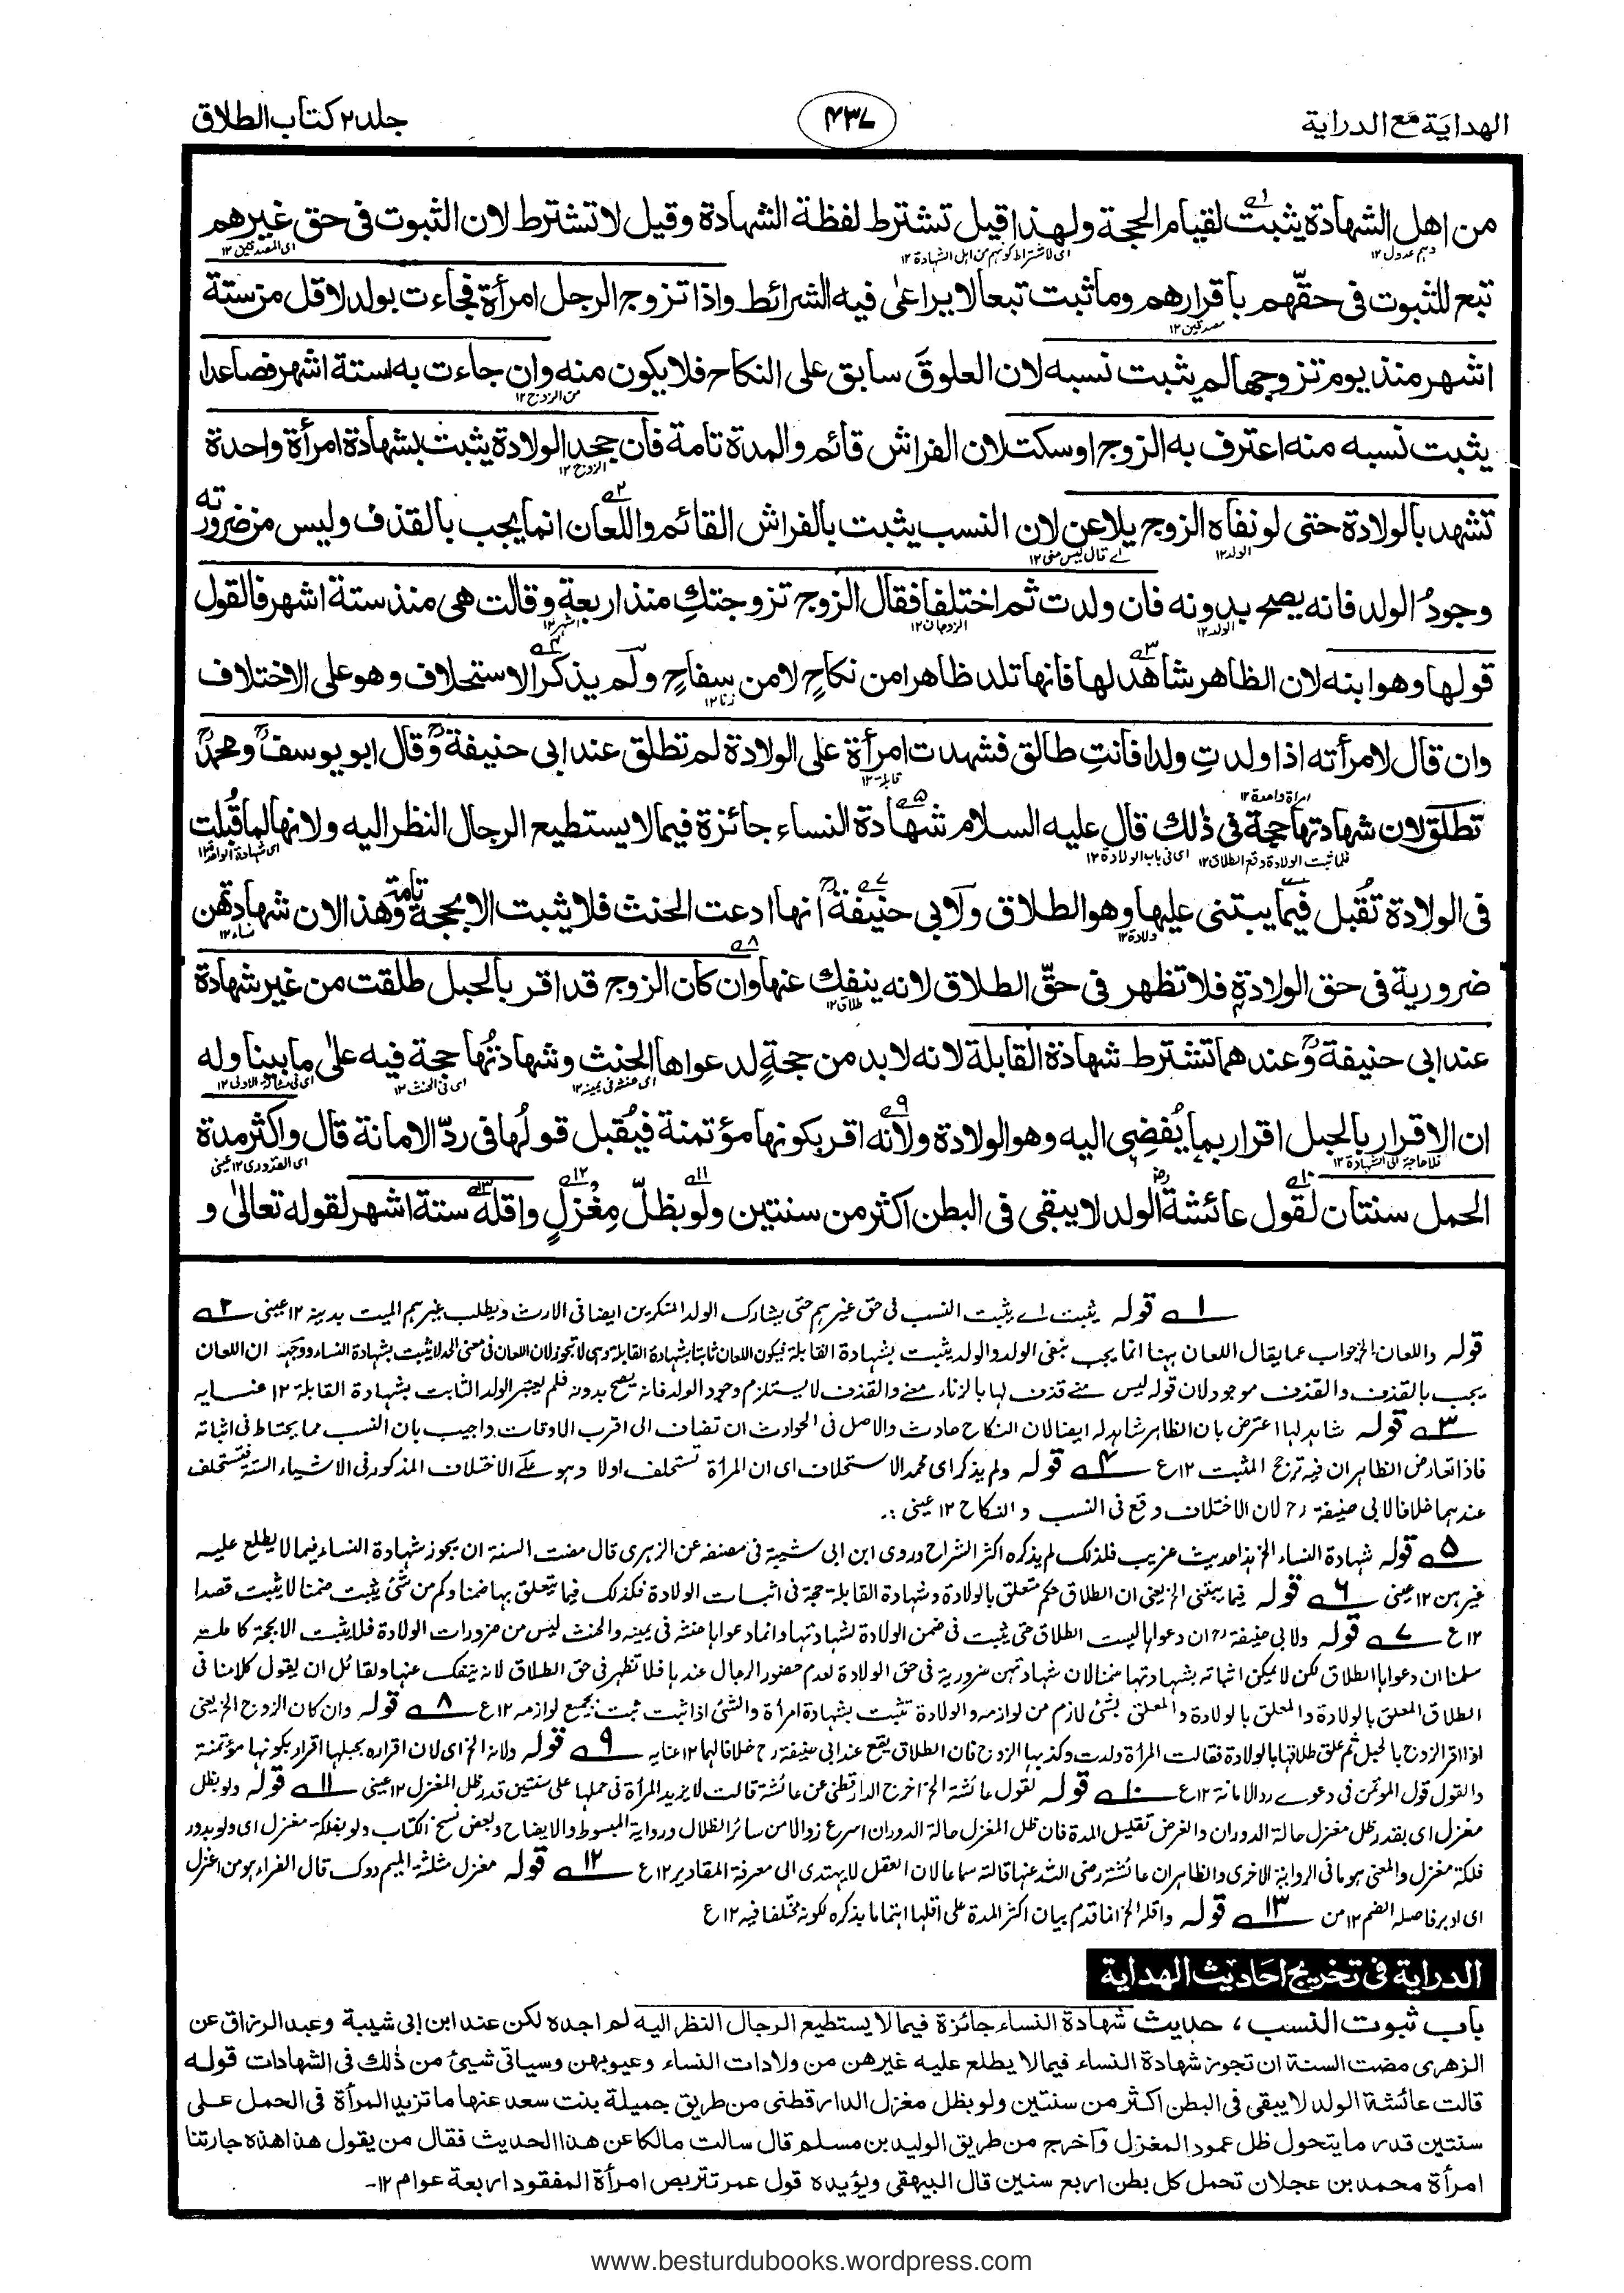 الهداية مع الدراية
۴۳۷
جلد ۲ كتاب الطلاق
من اهل الشهادة يثبت لقيام الحجة ولهذا قيل تشترط لفظة الشهادة وقيل لا تشترط لان الثبوت فى حق غيرهم
تبع للثبوت فى حقهم باقرارهم وما ثبت تبعا لا يراعى فيه الشرائط واذا تزوج الرجل امرأة فجاءت بولد لاقل من ستة
اشهر منذ يوم تزوجها لم يثبت نسبه لان العلوق سابق على النكاح فلا يكون منه وان جاءت به لستة اشهر فصاعدا
يثبت نسبه منه اعترف به الزوج او سكت لان الفراش قائم والمدة تامة فان جحد الولادة يثبت بشهادة امرأة واحدة
تشهد بالولادة حتى لو نفاه الزوج يلاعن لان النسب يثبت بالفراش القائم واللعان انما يجب بالقذف وليس من ضرورته
وجود الولد فانه يصح بدونه فان ولدت ثم اختلفا فقال الزوج تزوجتك منذ اربعة وقالت هى منذ ستة اشهر فالقول
قولها وهو ابنه لان الظاهر شاهد لها فانها تلد ظاهرا من نكاح لا من سفاح ولم يذكر الاستحلاف وهو على الاختلاف
وان قال لامرأته اذا ولدت ولدا فانت طالق فشهدت امرأة على الولادة لم تطلق عند ابى حنيفة وقال ابو يوسف ومحمد
تطلق لان شهادتها حجة فى ذلك قال عليه السلام شهادة النساء جائزة فيما لا يستطيع الرجال النظر اليه ولانها لما قُبلت
فى الولادة تُقبل فيما يبتنى عليها وهو الطلاق ولابى حنيفة انها ادعت الحنث فلا يثبت الا بحجة تامة وهذا لان شهادتهن
ضرورية فى حق الولادة فلا تظهر فى حق الطلاق لانه ينفك عنها وان كان الزوج قد اقر بالحبل طلقت من غير شهادة
عند ابى حنيفة وعندهما تشترط شهادة القابلة لانه لا بد من حجة لدعواها الحنث وشهادتها حجة فيه على ما بينا وله
ان الاقرار بالحبل اقرار بما يُفضى اليه وهو الولادة ولانه اقر بكونها مؤتمنة فيُقبل قولها فى ردّ الامانة قال واكثر مدة
الحمل سنتان لقول عائشة الولد لا يبقى فى البطن اكثر من سنتين ولو بظلّ مِغزلٍ واقله ستة اشهر لقوله تعالى و
۱ قوله يثبت اے يثبت النسب فى حق غيرهم حتى يشارك الولد المنكرين ايضا فى الارث ويطلب غريم الميت بدينه ۱۲ عينى ۲
قوله واللعان الخ جواب عما يقال اللعان ههنا انما يجب بنفى الولد والولد يثبت بشهادة القابلة فيكون اللعان ثابتا بشهادة القابلة وهى لا تجوز لان اللعان فى معنى الحد لا يثبت بشهادة النساء ووجهه ان اللعان
يجب بالقذف والقذف موجود لان قوله ليس منى قذف لها بالزناء معنى والقذف لا يستلزم وجود الولد فانه يصح بدونه فلم يعتبر الولد الثابت بشهادة القابلة ۱۲ عنايه
۳ قوله شاهد لها اعترض بان الظاهر شاهد له ايضا لان النكاح حادث والاصل فى الحوادث ان تضاف الى اقرب الاوقات واجيب بان النسب مما يحتاط فى اثباته
فاذا تعارض الظاهران فيه ترجح المثبت ۱۲ ع ۴ قوله ولم يذكر اى محمد الاستحلاف اى ان المرأة تستحلف اولا وهو على الاختلاف المذكور فى الاشياء الستة فتستحلف
عندهما خلافا لابى حنيفة رح لان الاختلاف وقع فى النسب والنكاح ۱۲ عينى
۵ قوله شهادة النساء الخ هذا حديث غريب فلذلك لم يذكره اكثر الشراح وروى ابن ابى شيبة فى مصنفه عن الزهرى قال مضت السنة ان يجوز شهادة النساء فيما لا يطلع عليه
غيرهن ۱۲ عينى ۶ قوله فيما يبتنى الخ يعنى ان الطلاق حكم متعلق بالولادة وشهادة القابلة حجة فى اثبات الولادة فكذلك فيما يتعلق بها ضمنا وكم من شئ يثبت ضمنا لا يثبت قصدا
۱۲ ع ۷ قوله ولابى حنيفة رح ان دعواها ليست الطلاق حتى يثبت فى ضمن الولادة لشهادتها وانما دعواها حنثه فى يمينه والحنث ليس من ضرورات الولادة فلا يثبت الا بحجة كاملة
سلمنا ان دعواها الطلاق لكن لا يمكن اثباته بشهادتها ضمنا لان شهادتهن ضرورية فى حق الولادة لعدم حضور الرجال عندها فلا تظهر فى حق الطلاق لانه ينفك عنها ولقائل ان يقول كلامنا فى
الطلاق المعلق بالولادة والمعلق بالولادة والمعلق بشئ لازم من لوازمه والولادة تثبت بشهادة امرأة والشئ اذا ثبت ثبت بجميع لوازمه ۱۲ ع ۸ قوله وان كان الزوج الخ يعنى
اذا اقر الزوج بالحبل ثم علق طلاقها بالولادة فقالت المرأة ولدت وكذبها الزوج فان الطلاق يقع عند ابى حنيفة رح خلافا لهما ۱۲ عنايه ۹ قوله ولانه الخ اى لان اقراره بحبلها اقرار بكونها مؤتمنة
والقول قول المؤتمن فى دعوے رد الامانة ۱۲ ع ۱۰ قوله لقول عائشة الخ اخرج الدارقطنى عن عائشة قالت لا يزيد المرأة فى حملها على سنتين قدر ظل المغزل ۱۲ عينى ۱۱ قوله ولو بظل
مغزل اى بقدر ظل مغزل حالة الدوران والغرض تقليل المدة فان ظل المغزل حالة الدوران اسرع زوالا من سائر الظلال ورواية المبسوط والايضاح وبعض نسخ الكتاب ولو بفلكة مغزل اى ولو بدور
فلكة مغزل والمعنى هو ما فى الرواية الاخرى والظاهر ان عائشة رضى الله عنها قالته سماعا لان العقل لا يهتدى الى معرفة المقادير ۱۲ ع ۱۲ قوله مغزل مثلثة الميم دوك قال الفراء هو من اغزل
اى ادير فاصله الضم ۱۲ من ۱۳ قوله واقله الخ انما قدم بيان اكثر المدة على اقلها اهتماما بذكره لكونه مختلفا فيه ۱۲ ع
الدراية فى تخريج احاديث الهداية
باب ثبوت النسب، حديث شهادة النساء جائزة فيما لا يستطيع الرجال النظر اليه لم اجده لكن عند ابن ابى شيبة وعبد الرزاق عن
الزهرى مضت السنة ان تجوز شهادة النساء فيما لا يطلع عليه غيرهن من ولادات النساء وعيوبهن وسياتى شيئ من ذلك فى الشهادات قوله
قالت عائشة الولد لا يبقى فى البطن اكثر من سنتين ولو بظل مغزل الدارقطنى من طريق جميلة بنت سعد عنها ما تزيد المرأة فى الحمل على
سنتين قدر ما يتحول ظل عمود المغزل وآخرج من طريق الوليد بن مسلم قال سالت مالكا عن هذا الحديث فقال من يقول هذا هذه جارتنا
امرأة محمد بن عجلان تحمل كل بطن اربع سنين قال البيهقى ويؤيده قول عمر تتربص امرأة المفقود اربعة عوام ۱۲
www.besturdubooks.wordpress.com